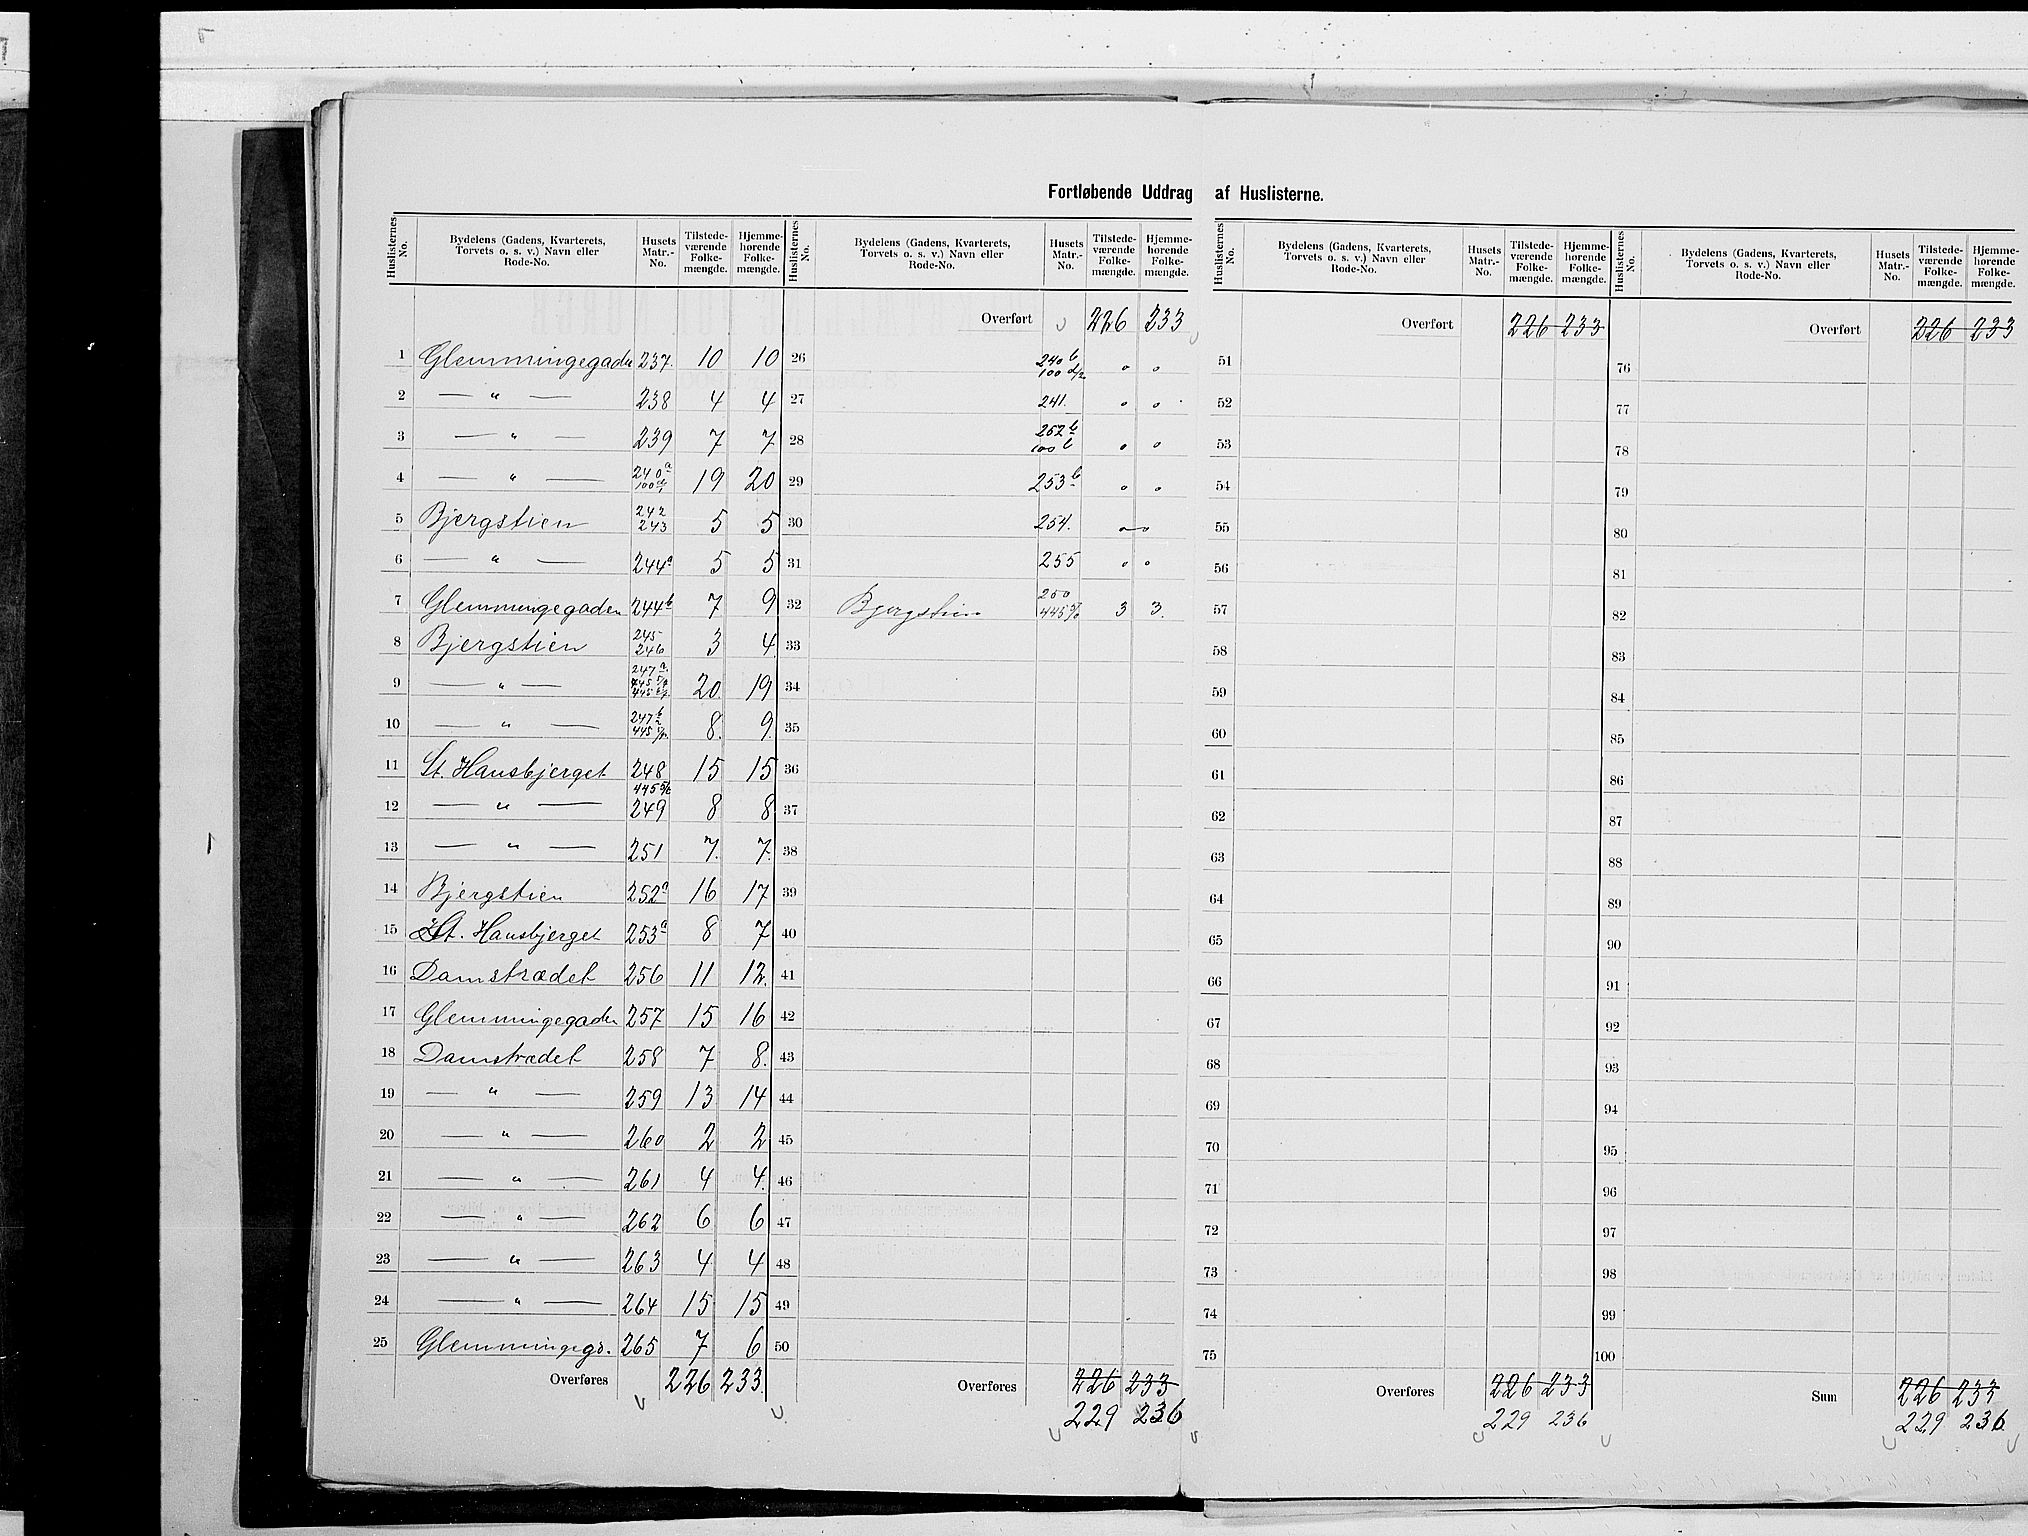 Fortløbende Uddrag af Huslisterne.
Huslisternes No. | Bydelens (Gadens, Kvarterets, Torvets o. s. v.) Navn eller Rode-No. | Husets Matr.-No. | Tilstedeværende Folkemængde. | Hjemmehørende Folkemængde.
1 Glemmingegaden 237. 10 10
2 — " — 238 4 4
3 — " — 239 7 7
4 — " — 240a 100 19 20
5 Bjergstien 242 243 5 5
6 — " — 244a 5 5
7 Glemmingegaden 244b 7 9
8 Bjergstien 245 246 3 4
9 — " — 247a 445 445 20 19
10 — " — 247b 445 8. 9.
11 St. Hansbjerget 248 15 15
12 — " — 445 249 8 8
13 — " — 251 7. 7.
14 Bjergstien 252a 16 17
15 St. Hansbjerget 253a 8 7
16 Damstrædet 256 11 12.
17 Glemmingegaden 257 15 16
18 Damstrædet 258 7 8.
19 — " — 259 13 14
20 — " — 260 2 2
21 — " — 261 4 4.
22 — " — 262 6 6
23 — " — 263 4 4
24 — " — 264 15 15
25 Glemmingegd. 265 7 6
Overføres 226 233.
Huslisternes No. | Bydelens (Gadens, Kvarterets, Torvets o. s. v.) Navn eller Rode-No. | Husets Matr.-No. | Tilstedeværende Folkemængde. | Hjemmehørende Folkemængde.
Overført 226 233
26 240b 100 d/2 " "
27 241. " "
28 252b 100b " "
29 253b " "
30 254. " "
31 255 " "
32 Bjergstien 250 445 3 3.
33
34
35
36
37
38
39
40
41
42
43
44
45
46
47
48
49
50
Overføres 226 233
229 236
Huslisternes No. | Bydelens (Gadens, Kvarterets, Torvets o. s. v.) Navn eller Rode-No. | Husets Matr.-No. | Tilstedeværende Folkemængde. | Hjemmehørende Folkemængde.
Overført 226 233
51
52
53
54
55
56
57
58
59
60
61
62
63
64
65
66
67
68
69
70
71
72
73
74
75
Overføres 226 233
229 236
Huslisternes No. | Bydelens (Gadens, Kvarterets, Torvets o. s. v.) Navn eller Rode-No. | Husets Matr.-No. | Tilstedeværende Folkemængde. | Hjemmehørende Folkemængde.
Overført 226 233
76
77
78
79
80
81
82
83
84
85
86
87
88
89
90
91
92
93
94
95
96
97
98
99
100
Sum 226 233
229 236